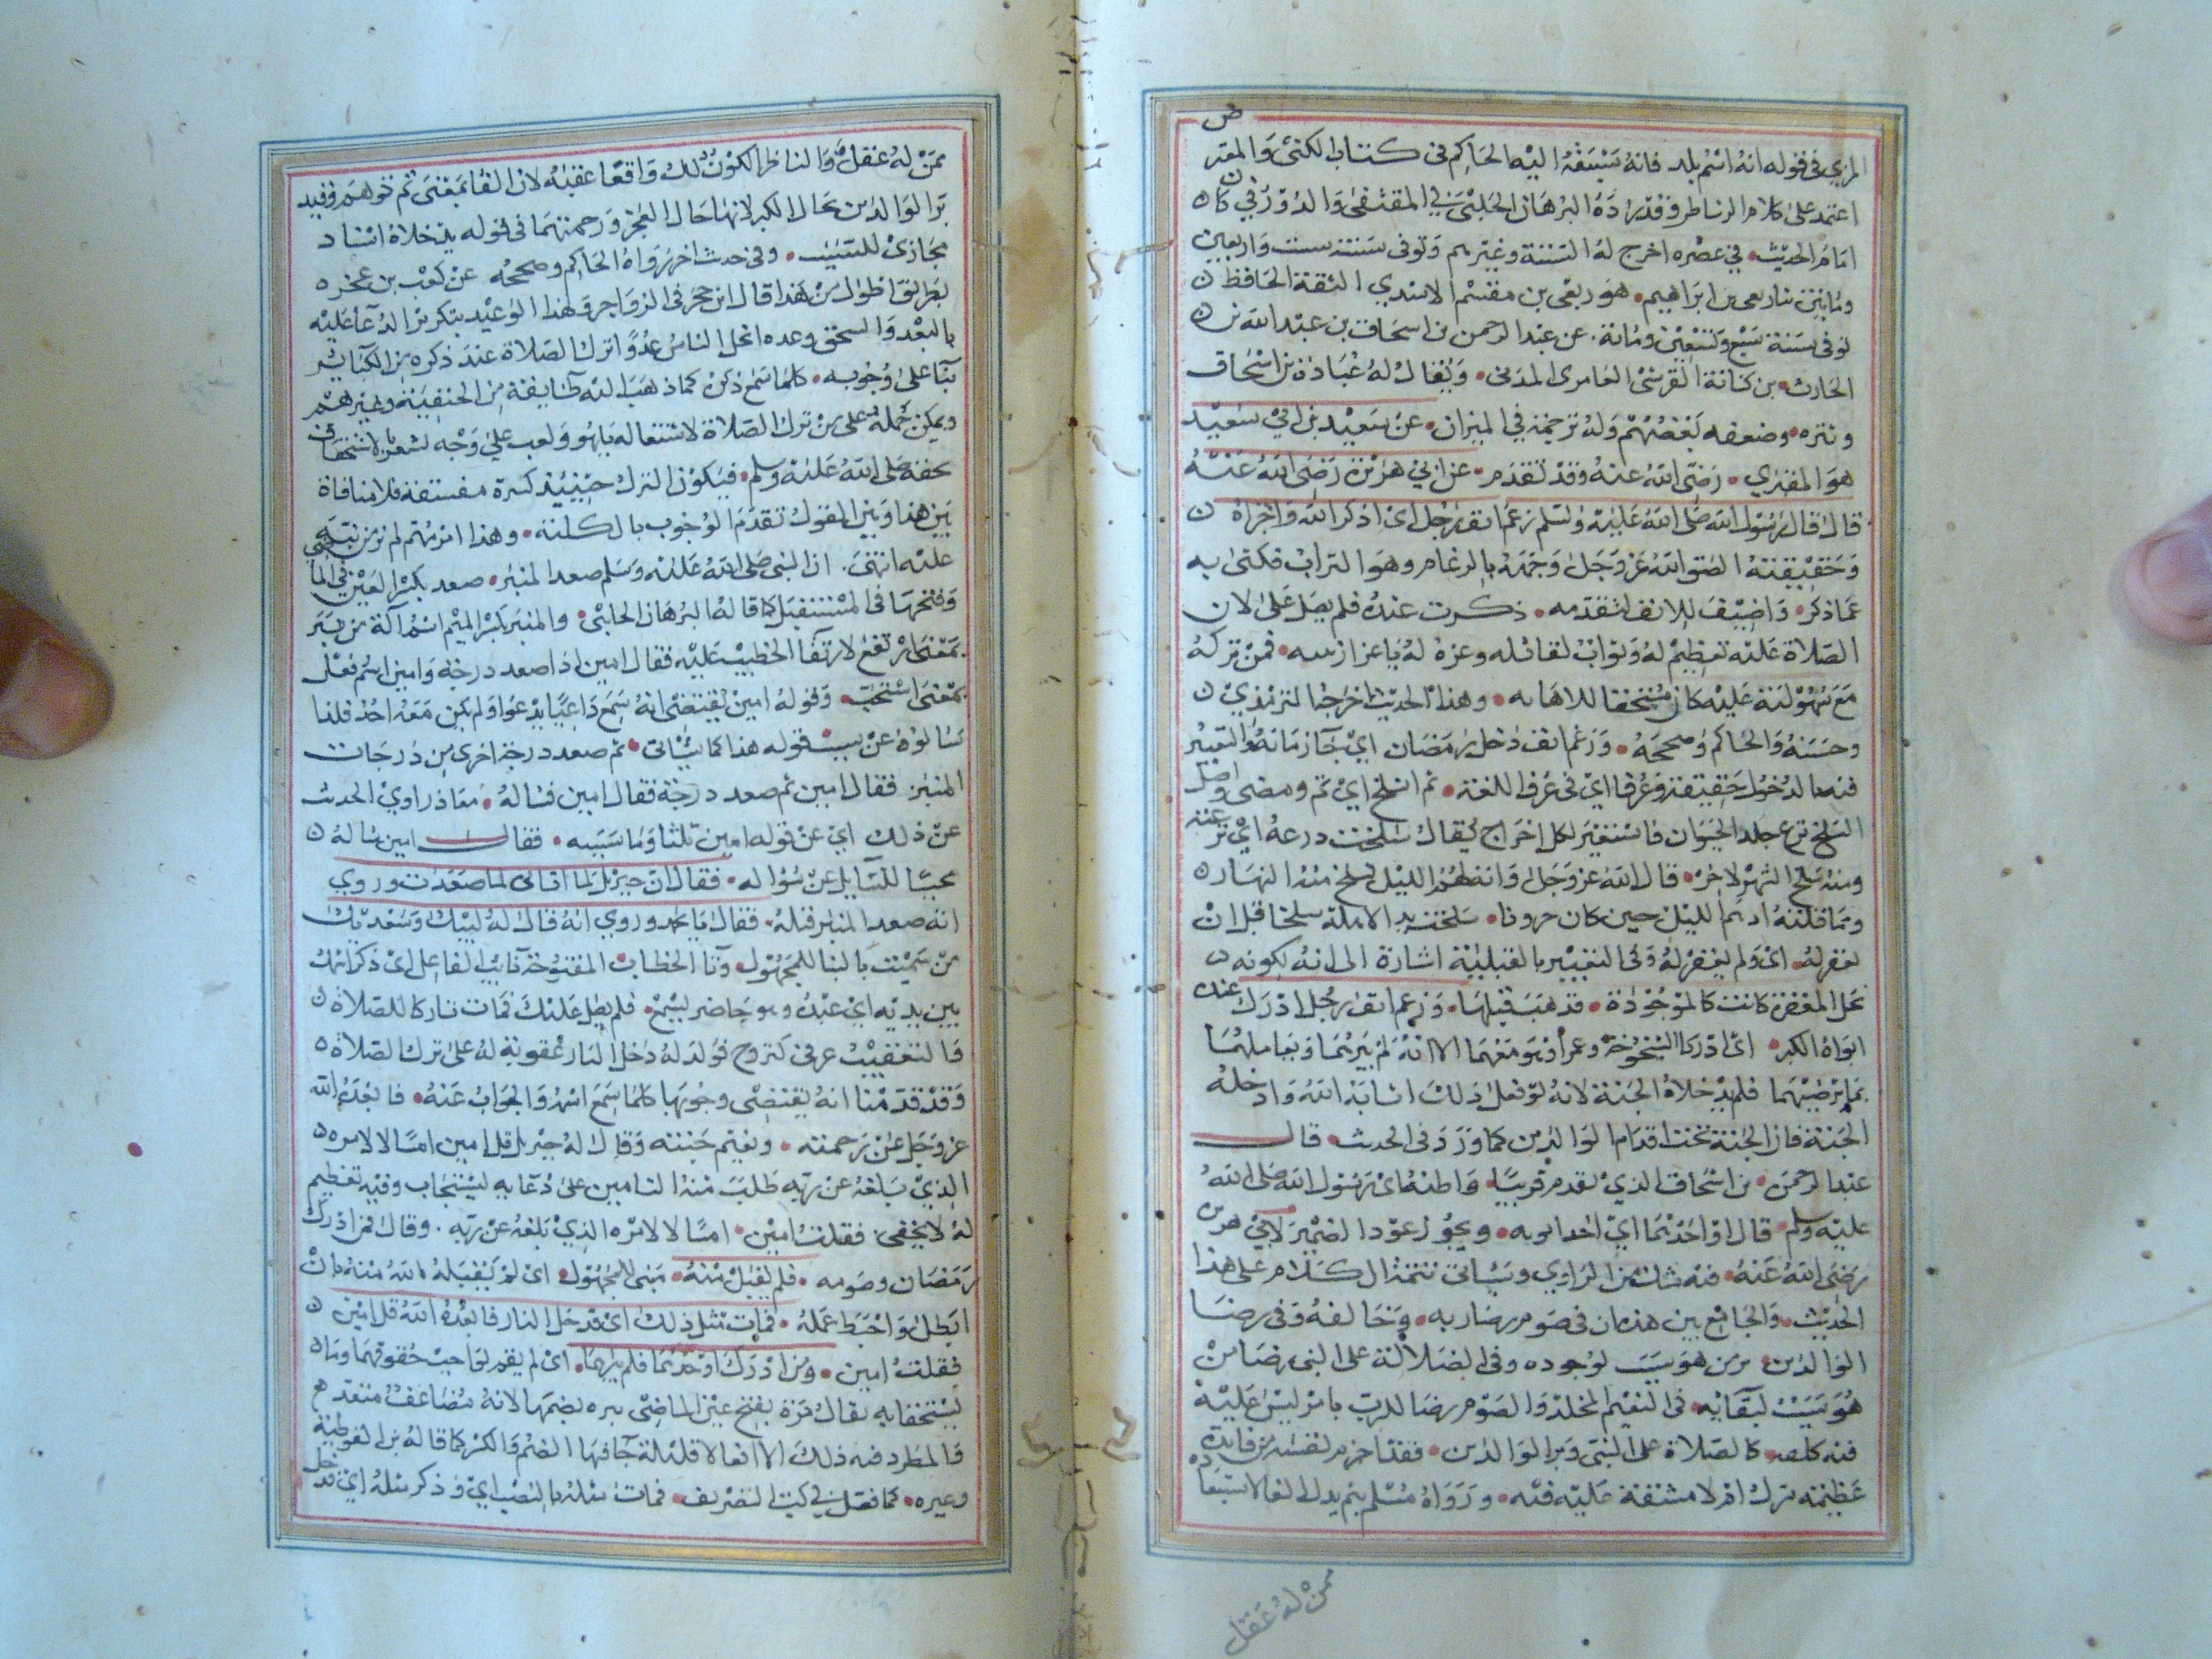 المزي في قوله انه اسم بلد فانه يسبقه اليه الحاكم في كتاب الكنى والمقر
اعتمد على كلام الرشاطي وقد رده البرهان الحلبي في المقتفى والدورقي كان
امام الحديث في عصره اخرج له الستة وغيرهم وتوفى سنة ست واربعين
ومايتين ثنا ربعي بن ابراهيم هو ربعي بن مقسم الاسدي الثقة الحافظ
توفى سنة سبع وتسعين ومائة عن عبد الرحمن بن اسحاق بن عبد الله بن
الحارث بن كنانة القرشي العامري المدني ويقال له عباد بن اسحاق
وضعفه بعضهم وله ترجمة في الميزان عن سعيد بن ابي سعيد
هو المقبري رضى الله عنه وقد تقدم عن ابي هريرة رضى الله عنه
قال قال رسول الله صلى الله عليه وسلم رغم انف رجل اي اذ كر الله واخزاه
وحقيقته الصقو الله عز وجل وجهه بالرغام وهو التراب فكنى به
عما ذكر واضيف للانف لتقدمه ذكرت عنده فلم يصل على لان
الصلاة عليه تعظيم له وثواب لقائله وعزة له باعزاز نبيه فمن تركه
مع سهولته عليه كان مستحقا للاهانه وهذا الحديث اخرجه الترمذي
وحسنه والحاكم وصححه ورغم انف رجل دخل رمضان اي جا زمانه والتعبير
فيه بالدخول حقيقة وعرفا اي في عرف اللغة ثم انسلخ اي تم ومضى واصل
السلخ نزع جلد الحيوان فاستعير لكل اخراج يقال سلخت درعه اي نزعته
ومنه سلخ الشهر لاخره قال الله عز وجل واية لهم الليل نسلخ منه النهار
ومما قلته ادهم الليل حين كان حرونا سلخته يد الاهلة سلخا قبل ان
يغفر له اي ولم يغفر له وفي التعبير بالقبلية اشارة الى انه لكونه
محل المغفرة كانت كالموجودة قد هبت قبلها ورغم انف رجل ادرك عنده
ابواه الكبر اي ادركا الشيخوخة وعمرا وهو معهما الا انه لم يبرهما ويعاملهما
بما يرضيهما فلم يدخلاه الجنة لانه لو فعل ذلك اثابه الله وادخله
الجنة فان الجنة تحت اقدام الوالدين كما ورد في الحديث قال
عبد الرحمن بن اسحاق الذي تقدم قريبا واظنه اي رسول الله صلى الله
عليه وسلم قال او احدهما اي احد ابويه ويجوز عود الضمير لابي هريرة
رضى الله عنه فيه شك من الراوي وسياتي تتمة الكلام على هذا
الحديث والجامع بين هذين ان في صوم رضا ربه وخالقه وفي رضا
الوالدين من هو سبب لوجوده وفي الصلاة على النبي رضا من
هو سبب لبقائه في النعيم المخلد والصوم رضا للرب بامر ليس عليه
فيه كلفه كالصلاة على النبي وبر الوالدين فقد احرم نفسه من فايدة
عظيمة بترك امر لا مشقة عليه فيه ورواه مسلم بثم بدل الفا لاستبعاده
ممن له عقل
ممن له عقل والناظر الكون ذلك واقعا عقبه لان الفا بمعنى ثم توهم وقيد
بر الوالدين بحال الكبر لانها حال العجز ورحمتهما في قوله يدخلاه اسناد
مجازى للسبب وفي حديث اخر رواه الحاكم وصححه عن كعب بن عجره
بطريق اطول من هذا قال ابن حجر في الزواجر وهذا الوعيد بتكرير الدعا عليه
بالبعد والسحق وعده اجل الناس عدوا ترك الصلاة عند ذكره من الكبائر
بنا على وجوبه كلما سمع ذكره كما ذهب اليه طايفة من الحنفية وغيرهم
ويمكن حمله على من ترك الصلاة لاشتغاله بلهو ولعب على وجه يشعر بالاستخفاف
بحقه صلى الله عليه وسلم فيكون الترك حينئذ كبيرة مفسقة فلا منافاة
بين هذا وبين القول بعدم الوجوب بالكلية وهذا امر مهم لم نر من نبه
عليه انتهى ان النبي صلى الله عليه وسلم صعد المنبر صعد بكسر العين في الماضي
وفتحها في المستقبل كما قاله البرهان الحلبي والمنبر بكسر الميم اسم آلة من نبر
بمعنى ارتفع لارتقآ الخطيب عليه فقال امين اذا صعد درجة وامين اسم فعل
بمعنى استجب وقوله امين يقتضى انه سمع داعيا يدعوا ولم يكن معه احد فلذا
سالوه عن سبب قوله هذا كما سياتى ثم صعد درجة اخرى من درجات
المنبر فقال امين ثم صعد درجة فقال امين فساله معاذ راوي الحديث
عن ذلك اي عن قوله امين ثلثا وما سببه فقال امين ساله
مجيبا للسايل عن سؤاله فقال ان جبريل لما اتانى لما صعدت وروي
انه صعد المنبر قبله فقال يا محمد وروي انه قال له لبيك وسعديك
من سميت بالبنا للمجهول وتآ الخطاب المفتوحة نائب الفاعل اي ذكر اسمك
بين يديه اي عنده وهو حاضر يسمع فلم يصل عليك فمات تاركا للصلاة
والتعقيب عرفي كتزوج فولد له دخل النار عقوبة له على ترك الصلاة
وقد قدمنا انه يقتضى وجوبها كلما سمع اسمه والجواب عنه فابعده الله
عز وجل عن رحمته ونعيم جنته وقال له جبريل قل امين امتثالا لامره
الذي يبلغه عن ربه طلب منه التامين على دعايه ليستجاب وفيه تعظيم
له لا يخفى فقلت امين امتثالا لامره الذي بلغه عن ربه وقال فمن ادرك
رمضان وصومه فلم يقبل منه مبنى للمجهول اي لم يقبله الله منه بان
ابطل واحبط عمله فمات مثل ذلك اي قد دخل النار فابعده الله قل امين
فقلت امين ومن ادرك ابويه او احدهما فلم يبرهما اي لم يقم لواجب حقوقهما وما
يستحقانه يقال بره بفتح عين الماضى يبره بضمها لانه مضاعف متعد
والمطرد فيه ذلك الا افعالا قليلة جآ فيها الضم والكسر كما قاله ابن القوطية
وغيره كما فصل في كتب التصريف فمات مثله بالنصب اي وذكر مثله اي قد دخل